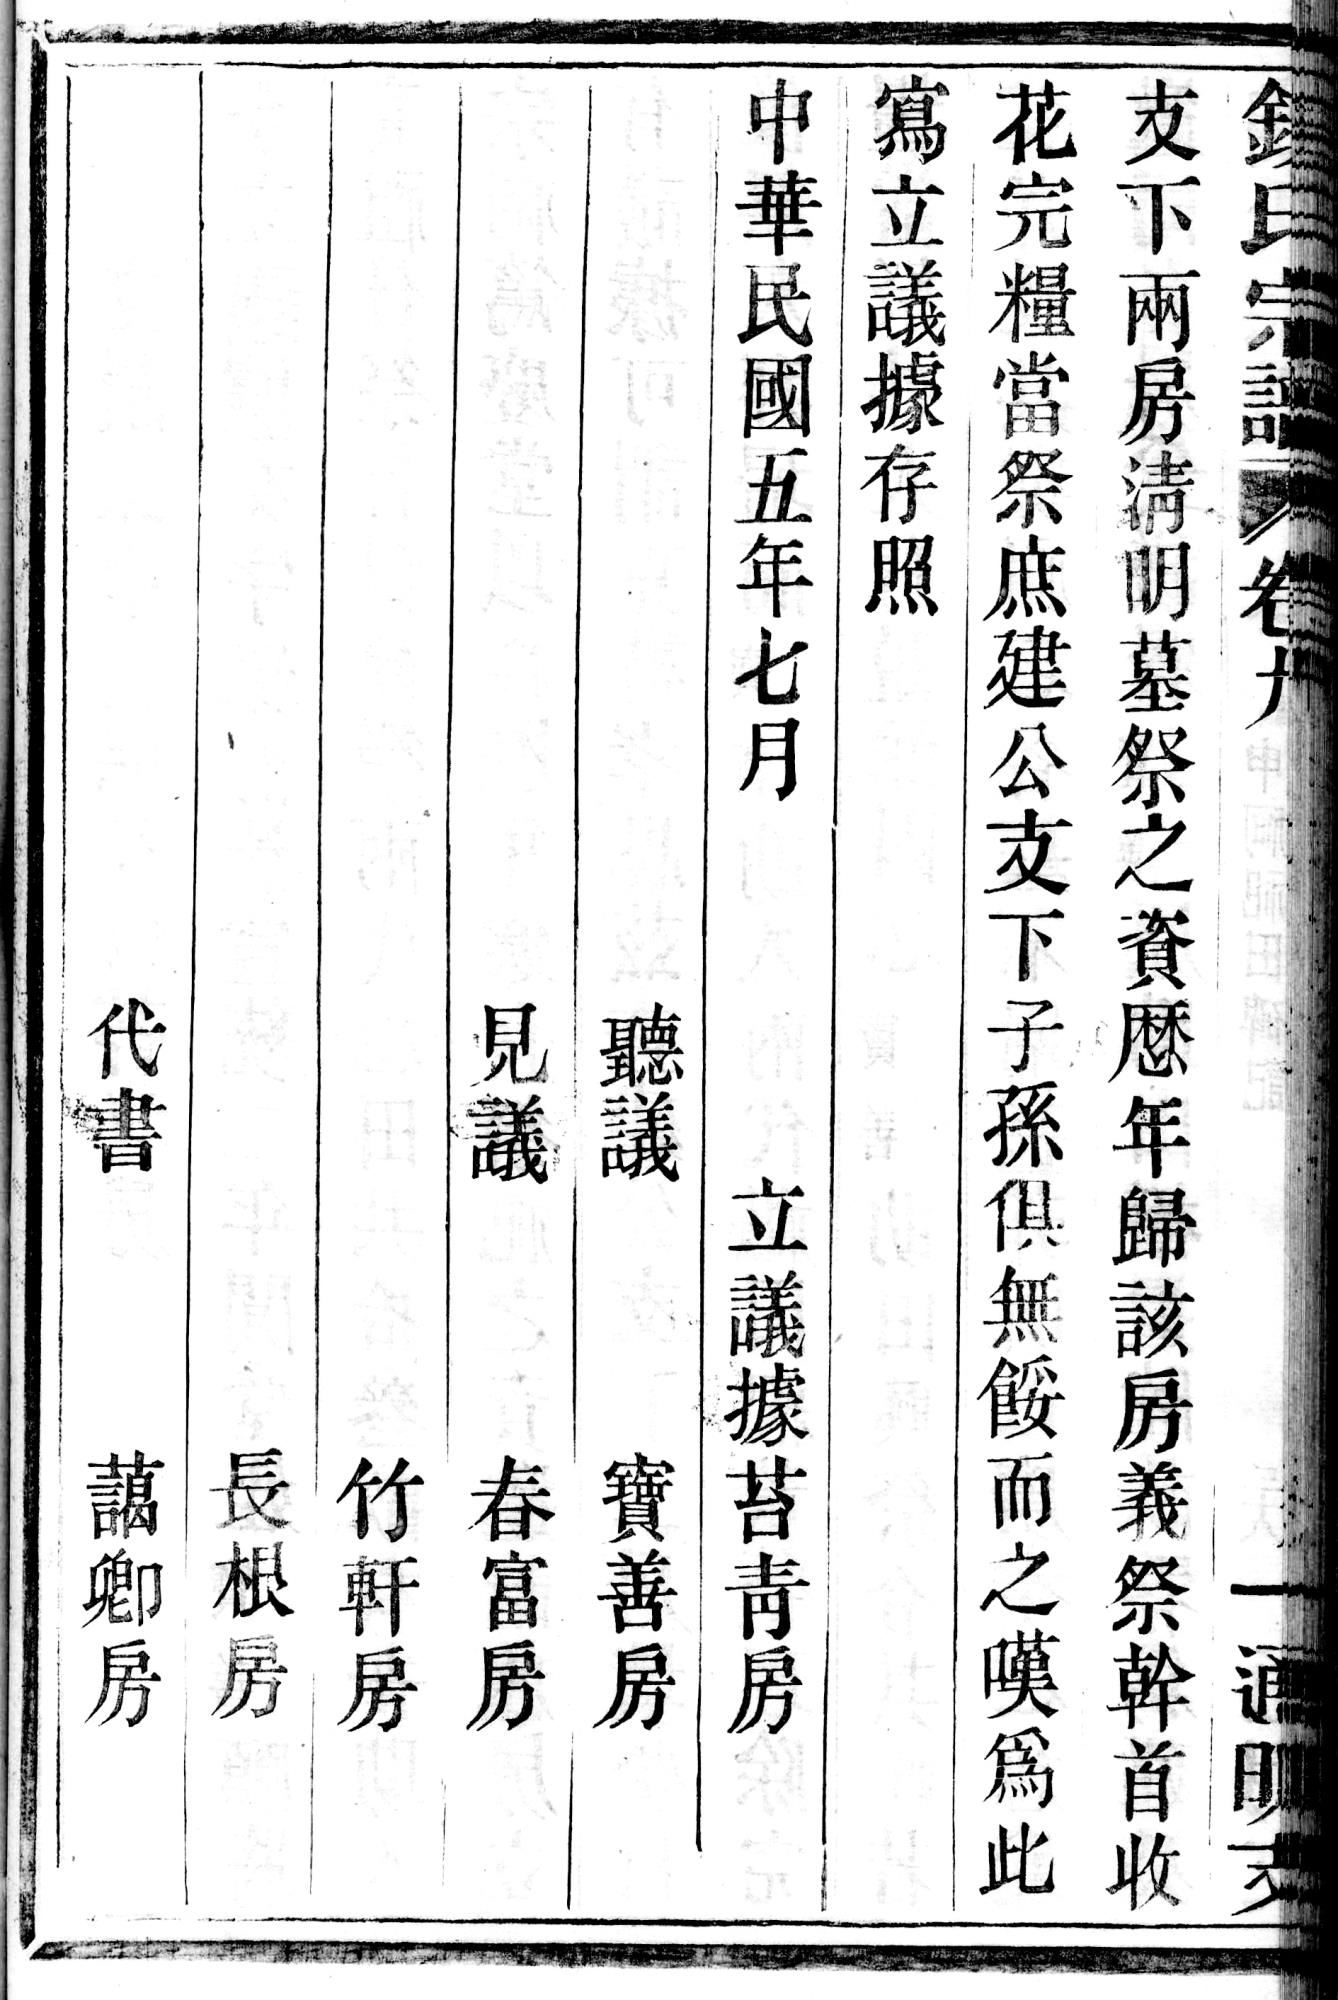 氏宗譜 卷 通明支
支下兩房清明墓祭之資歷年歸該房義祭幹首收
花完糧當祭庶建公支下子孫俱無餒而之嘆爲此
寫立議據存照
中華民國五年七月 立議據苔青房
聽議 寶善房
見議 春富房
竹軒房
長根房
代書 藹卿房